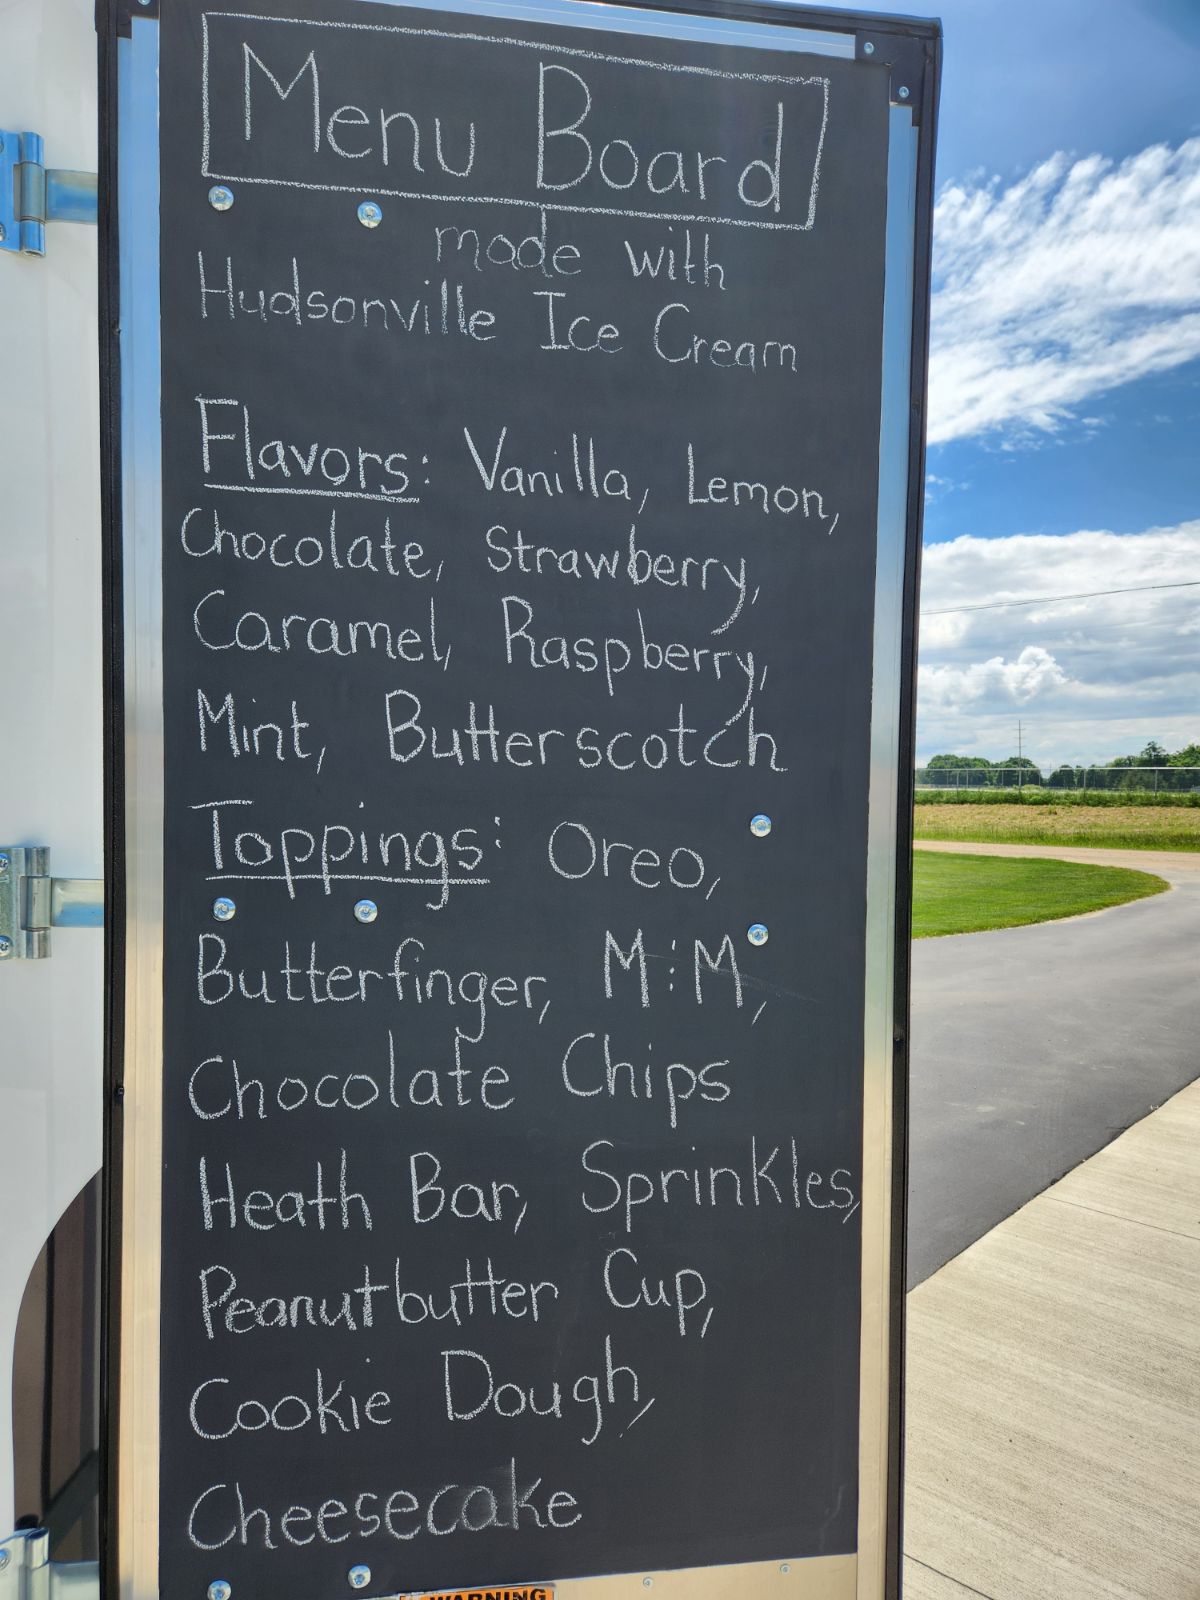 Menu Board
made with
Hudsonville Ice Cream
Flavors: Vanilla, Lemon,
Chocolate, Strawberry,
Caramel, Raspberry,
Mint, Butterscotch
Toppings: Oreo,
Butterfinger, M:M,
Chocolate Chips
Heath Bar, Sprinkles,
Peanutbutter Cup,
Cookie Dough,
Cheesecake
WARNING